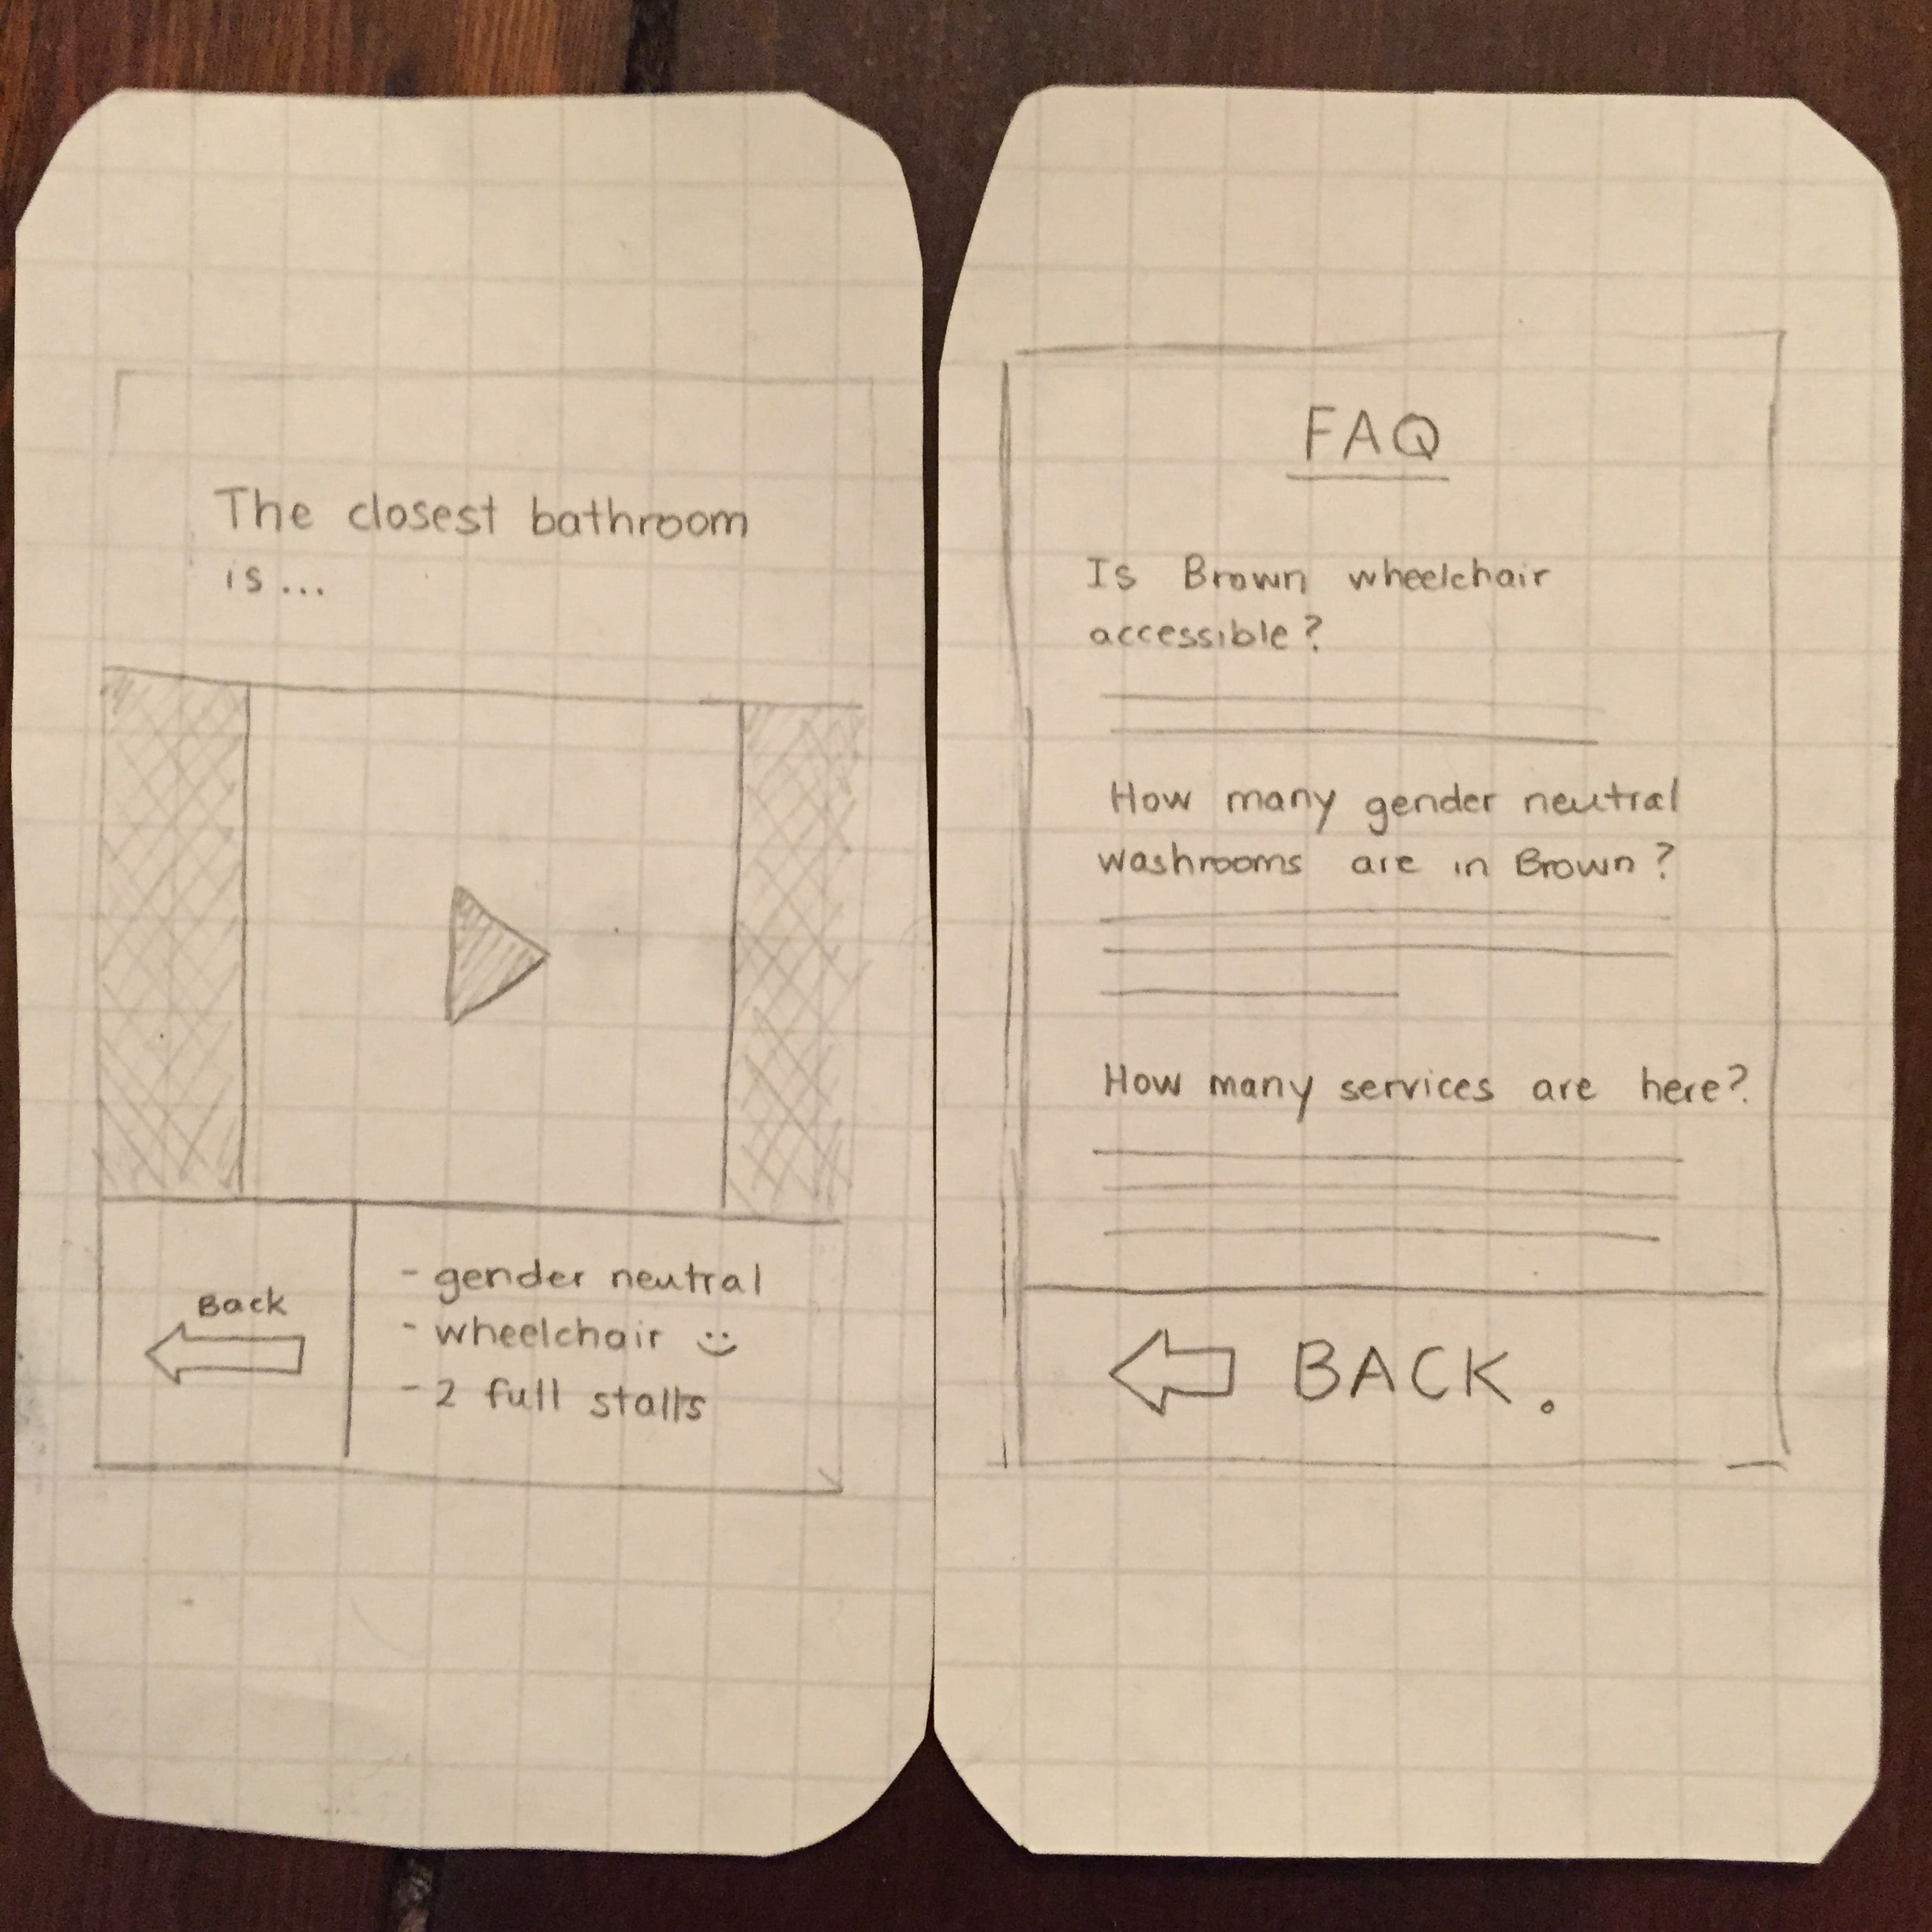 The closest bathroom
is...
Back
- gender neutral
- wheelchair
- 2 full stalls
FAQ
Is Brown wheelchair
accessible?
How many gender neutral
washrooms are in Brown?
How many services are here?
BACK.